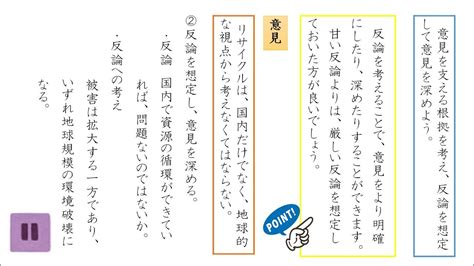 意見を支える根拠を考え、反論を想定
して意見を深めよう。
反論を考えることで、意見をより明確
にしたり、深めたりすることができます。
甘い反論よりは、厳しい反論を想定し
ておいた方が良いでしょう。
POINT!
意見
リサイクルは、国内だけでなく、地球的
な視点から考えなくてはならない。
②反論を想定し、意見を深める。
・反論 国内で資源の循環ができてい
れば、問題ないのではないか。
・反論への考え
被害は拡大する一方であり、
いずれ地球規模の環境破壊に
なる。